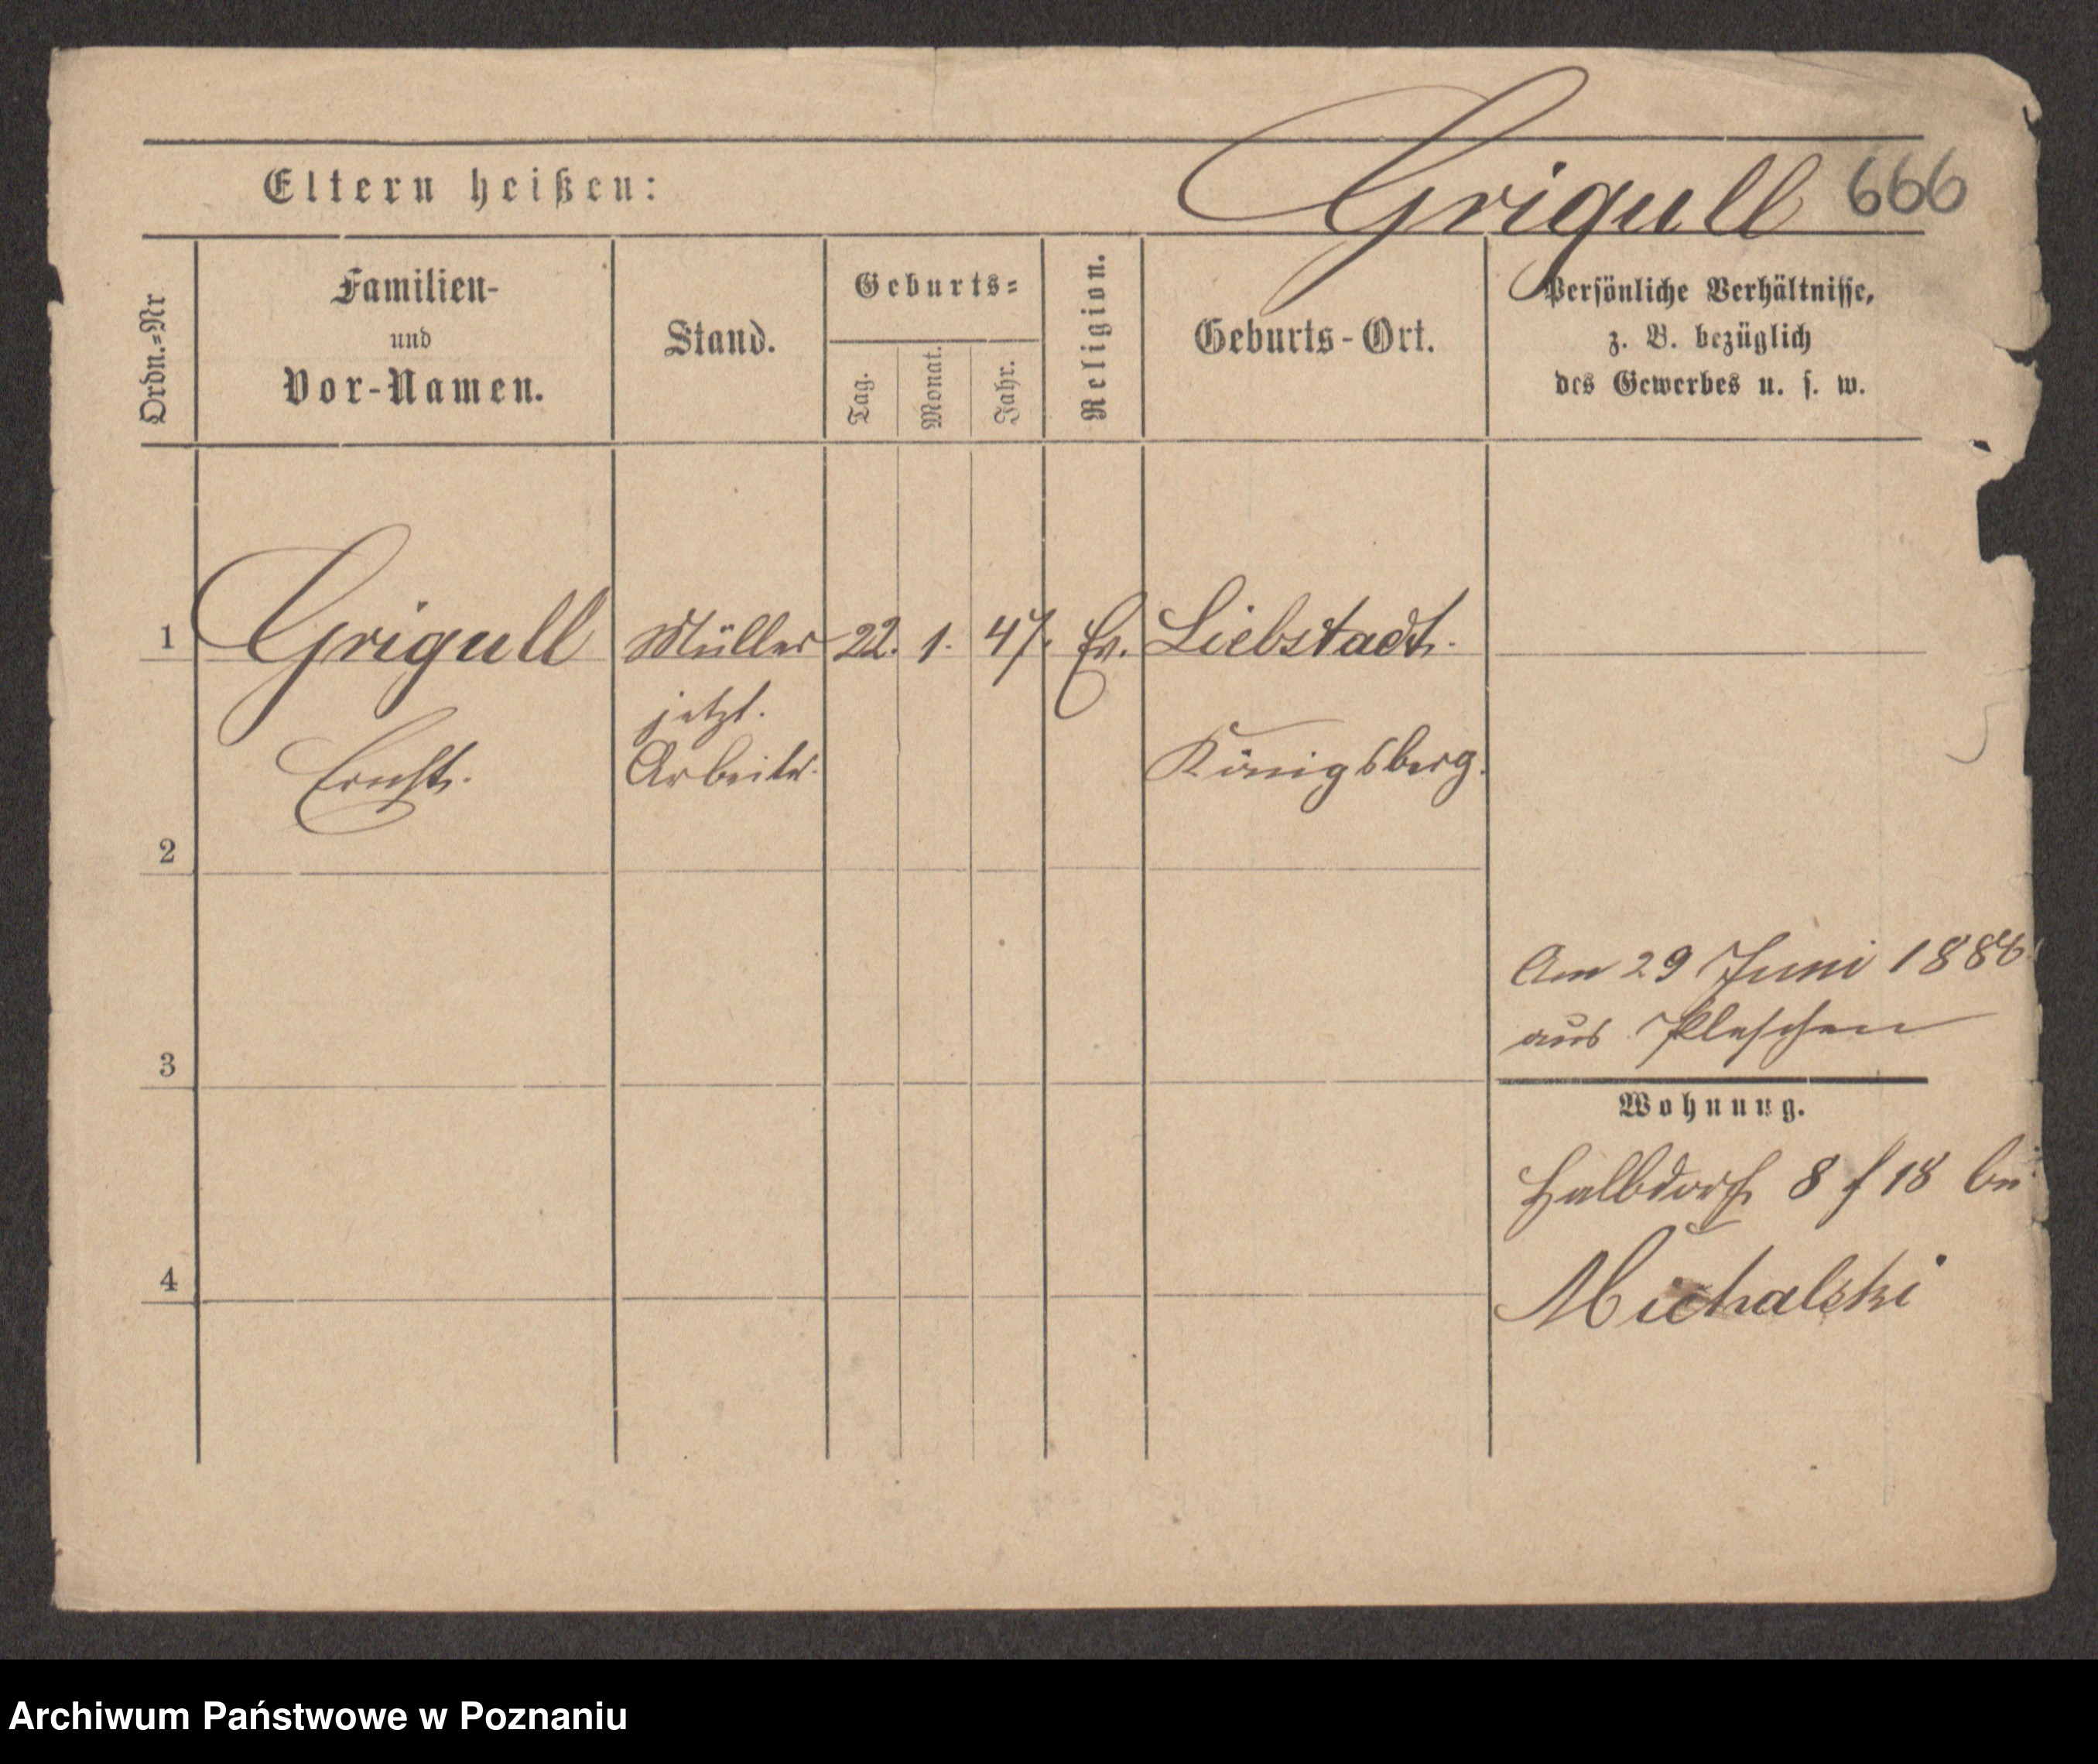 Grigull 666
Eltern heißen:
Ordn.-Nr
Familien-
und
Vor-Namen.
Stand.
Geburts-
Tag.
Monat.
Jahr.
Religion.
Geburts-Ort.
Persönliche Verhältnisse,
z. B. bezüglich
des Gewerbes u. s. w.
1 Grigull Müller 22. 1. 47. Ev. Liebstadt.
jetzt.
Ernst. Arbeiter. Königsberg.
2
Am 29 Juni 1886
aus Pleschen
3
Wohnung.
Halbdorf 8 f 18 bei
Michalski
4
Archiwum Państwowe w Poznaniu